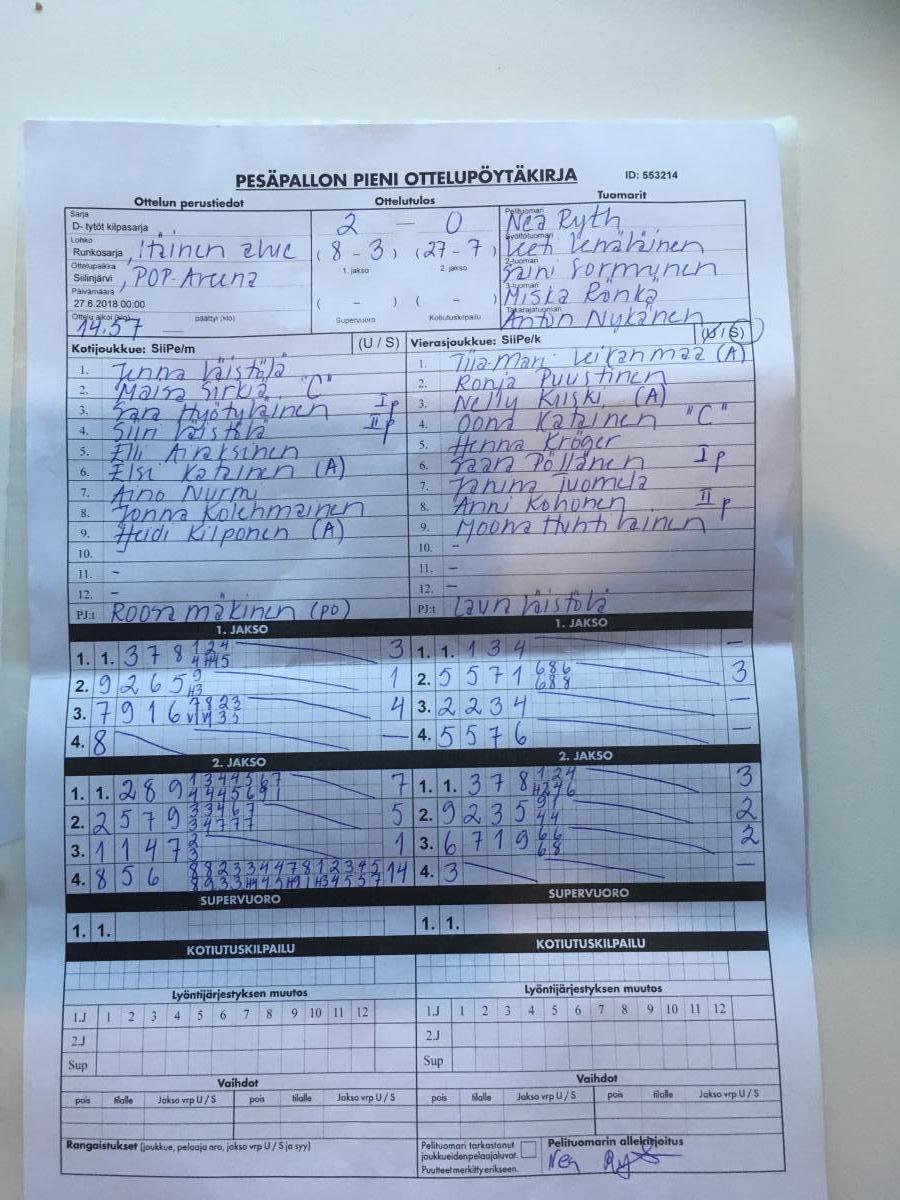 PESÄPALLON PIENI OTTELUPÖYTÄKIRJA ID: 553214
Ottelun perustiedot Ottelutulos Tuomarit
Sarja
D- tytöt kilpasarja
Lohko
Runkosarja , Itäinen alue
Ottelupaikka
Siilinjärvi , POP-Areena
Päivämäärä
27.6.2018 00:00
Ottelu alkoi (klo) päättyi (klo)
14.57
2 - 0
( 8 - 3 ) ( 27 - 7 )
1. jakso 2. jakso
( - ) ( - )
Supervuoro Kotiutuskilpailu
Pelituomari
Nea Ryth
Syöttötuomari
Veeti Venäläinen
2-tuomari
Saini Sormunen
3-tuomari
Miska Rönkä
Takarajatuomari
Anton Nykänen
Kotijoukkue: SiiPe/m (U / S)
1. Jenna Väistölä
2. Maisa Sirkiä "C"
3. Sara Hyötyläinen I p
4. Siiri Väistölä II p
5. Elli Airaksinen
6. Elsi Katainen (A)
7. Aino Nurmi
8. Jonna Kolehmainen
9. Heidi Kilponen (A)
10. -
11. -
12. -
PJ:t Roosa Mäkinen (PO)
Vierasjoukkue: SiiPe/k (U / S)
1. Tiia-Mari Leikanmaa (A)
2. Ronja Puustinen
3. Nelly Kiiski (A)
4. Oona Katainen "C"
5. Henna Kröger
6. Saara Pöllänen I p
7. Janina Tuomela
8. Anni Kohonen II p
9. Moona Huhtilainen
10. -
11. -
12. -
PJ:t Laura Väistölä
1. JAKSO
1. 1. 3 7 8 3
2. 9 2 6 5 1
3. 7 9 1 6 4
4. 8 —
1. JAKSO
1. 1. 1 3 4 —
2. 5 5 7 1 6 8 6 3
6 8 8
3. 2 2 3 4 —
4. 5 5 7 6 —
2. JAKSO
1. 1. 2 8 9 7
2. 2 5 7 9 5
3. 1 1 4 7 2 1
3
4. 8 5 6 14
2. JAKSO
1. 1. 3 7 8 1 2 4 3
2. 9 2 3 5 9 1 2
4 4
3. 6 7 1 9 6 6 2
6 8
4. 3 —
SUPERVUORO
1. 1.
SUPERVUORO
1. 1.
KOTIUTUSKILPAILU
KOTIUTUSKILPAILU
Lyöntijärjestyksen muutos
1.J 1 2 3 4 5 6 7 8 9 10 11 12
2.J
Sup
Lyöntijärjestyksen muutos
1.J 1 2 3 4 5 6 7 8 9 10 11 12
2.J
Sup
Vaihdot
pois tilalle Jakso vrp U / S pois tilalle Jakso vrp U / S
Vaihdot
pois tilalle Jakso vrp U / S pois tilalle Jakso vrp U / S
Rangaistukset (joukkue, pelaaja nro, jakso vrp U / S ja syy)
Pelituomari tarkastanut
joukkueidenpelaajaluvat.
Puutteet merkitty erikseen.
Pelituomarin allekirjoitus
Nea Ryth